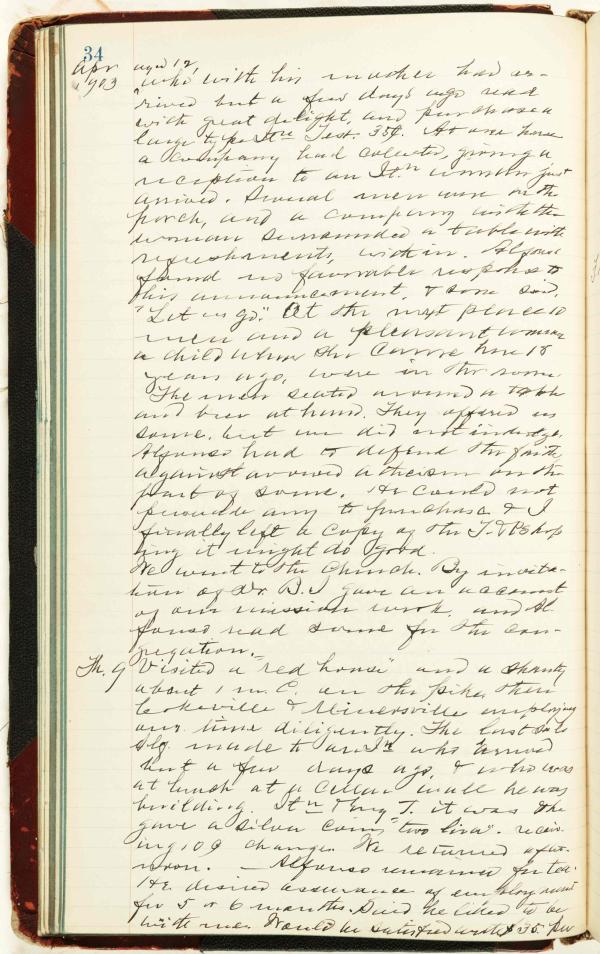 34
Apr 1903
aged 12,
who with his mother had ar-
rived but a few days ago read
with great delight, and purchased a
large type Itn Test. 35¢. At one house
a company had collected, giving a
reception to an Itn woman just
arrived. Several men were on the
porch, and a company with the
woman surrounded a table with
refreshments, within. Alfonso
found no favorable response to
his announcement, & soon said,
"Let us go." At the next place 10
men and a pleasant woman
a child when she came here 18
years ago, were in the room.
The men seated around a table
and beer at hand. They offered us
some, but we did not indulge.
Alfonso had to defend the faith
against avowed atheism on the
part of some. He could not
persuade any to purchase & I
finally left a copy of the T. & Ps hop
ing it might do good.
We went to the church. By invita-
tion of Dr. B. I gave an account
of our mission work, and Al
fonso read some for the con-
gregation.
Th. 9 Visited a "red house" and a shanty
about 1 m. C. on the pike, then
Cookeville & Minersville employing
our time diligently. The last sale
was made to an In who arrived
but a few days ago, & who was
at lunch at a cellar wall he was
building. Itn & Eng T. it was & he
gave a silver coin, "two lira". receiv-
ing 10¢ change. We returned after-
noon. — Alfonso remained for tea.
He desired assurance of employment
for 5 or 6 months. Said he liked to be
with me. Would be satisfied with $35. per